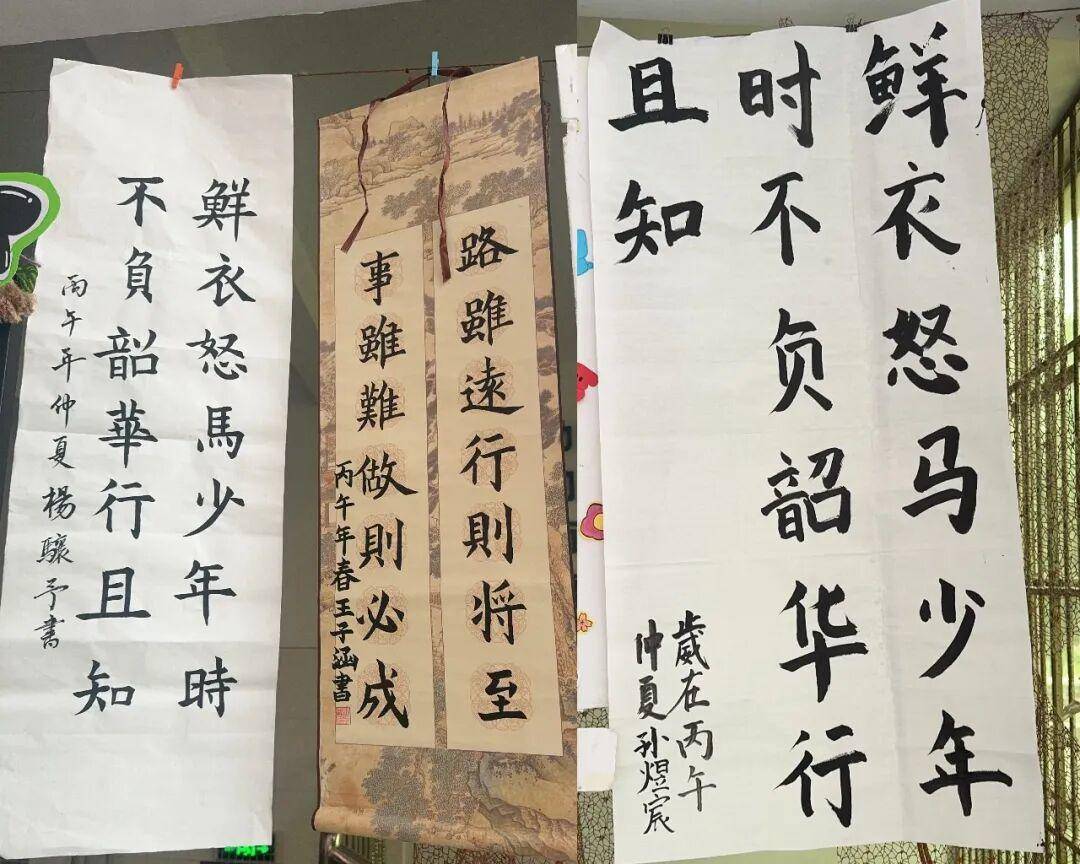 鮮衣怒馬少年時
不負韶華行且知
丙午年仲夏楊驤予書
路雖遠行則将至
事雖難做則必成
丙午年春王子涵書
鲜衣怒马少年
时不负韶华行
且知
歲在丙午
仲夏孙煜宸